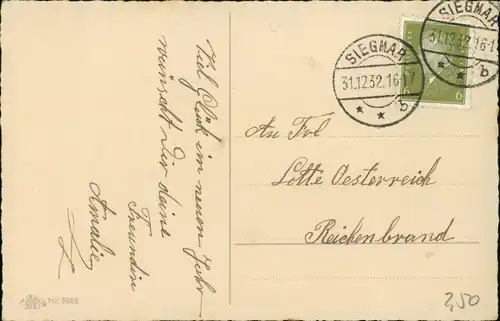 Viel Glück im neuen Jahr
wünscht Dir deine
Freundin
Amalie
SIEGMAR
31.12.32.16-17
* * b
SIEGMAR
31.12.32.16-17
* * b
6
An Frl
Lotte Oesterreich
Reichenbrand
Nr. 5016
2,50